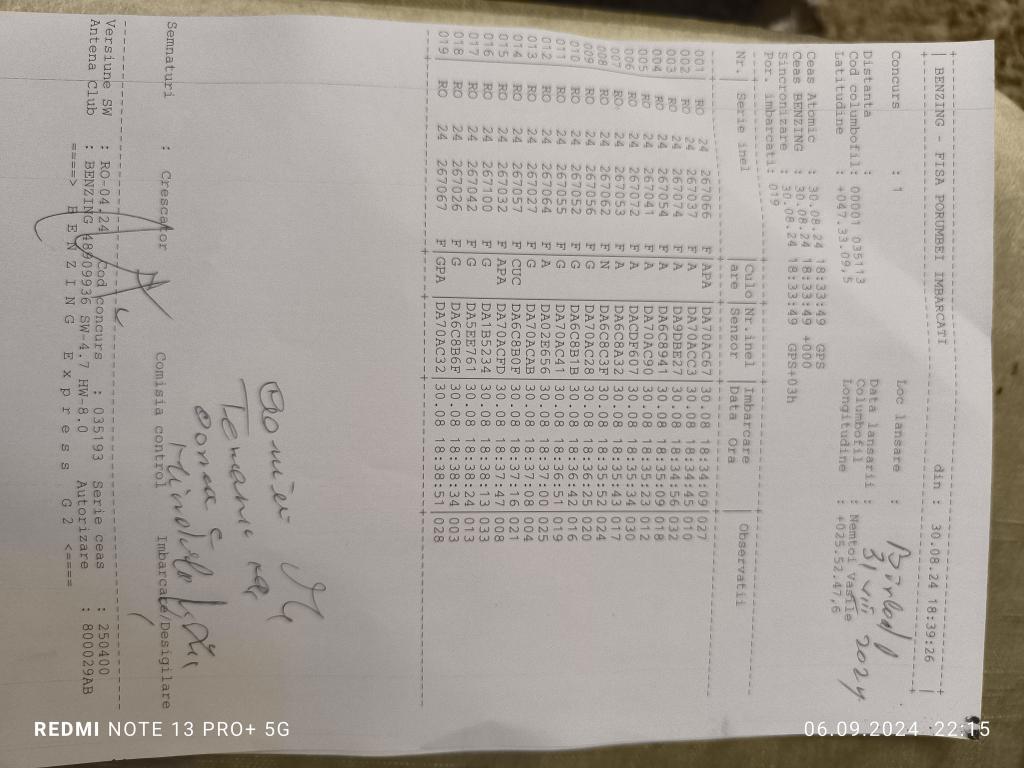 BENZING - FISA PORUMBEI IMBARCATI din : 30.08.24 18:39:26
Concurs : 1 Loc lansare : Bârlad
Distanta : Data lansarii : 31 VIII 2024
Cod columbofil: 00001 035113 Columbofil : Nemtoi Vasile
Latitudine : +047.33.09,5 Longitudine : +025.52.47,6
Ceas Atomic : 30.08.24 18:33:49 GPS
Ceas BENZING : 30.08.24 18:33:49 +000
Sincronizare : 30.08.24 18:33:49 GPS+03h
Por. imbarcati: 019
Nr. Serie inel Culo Nr.inel Imbarcare Observatii
are Senzor Data Ora
001 RO 24 267066 F APA DA70AC67 30.08 18:34:09 027
002 RO 24 267037 F A DA70ACC3 30.08 18:34:45 010
003 RO 24 267074 F A DA9DBE27 30.08 18:34:56 032
004 RO 24 267054 F A DA6C8941 30.08 18:35:09 018
005 RO 24 267041 F A DA70AC90 30.08 18:35:23 012
006 RO 24 267072 F A DACDF607 30.08 18:35:34 030
007 RO 24 267053 F A DA6C8A32 30.08 18:35:43 017
008 RO 24 267062 F N DA6C8C3F 30.08 18:35:52 024
009 RO 24 267056 F G DA70AC28 30.08 18:36:25 020
010 RO 24 267052 F G DA6C8B1B 30.08 18:36:42 016
011 RO 24 267055 F G DA70AC41 30.08 18:36:51 019
012 RO 24 267064 F A DA02E656 30.08 18:37:00 025
013 RO 24 267027 F G DA70ACAB 30.08 18:37:08 004
014 RO 24 267057 F CUC DA6C8B0F 30.08 18:37:16 021
015 RO 24 267032 F APA DA70ACFD 30.08 18:37:47 008
016 RO 24 267100 F G DA1B5234 30.08 18:38:13 033
017 RO 24 267042 F G DA5EE761 30.08 18:38:24 013
018 RO 24 267026 F G DA6C8B6F 30.08 18:38:34 003
019 RO 24 267067 F GPA DA70AC32 30.08 18:38:51 028
Semnaturi : Crescator Comisia control Imbarcate/Desigilare
Versiune SW : RO-04.24 Cod concurs : 035193 Serie ceas : 250400
Antena Club : BENZING 48909936 SW-4.7 HW-8.0 Autorizare : 800029AB
====> B E N Z I N G E x p r e s s G 2 <====
REDMI NOTE 13 PRO+ 5G
06.09.2024 22:15